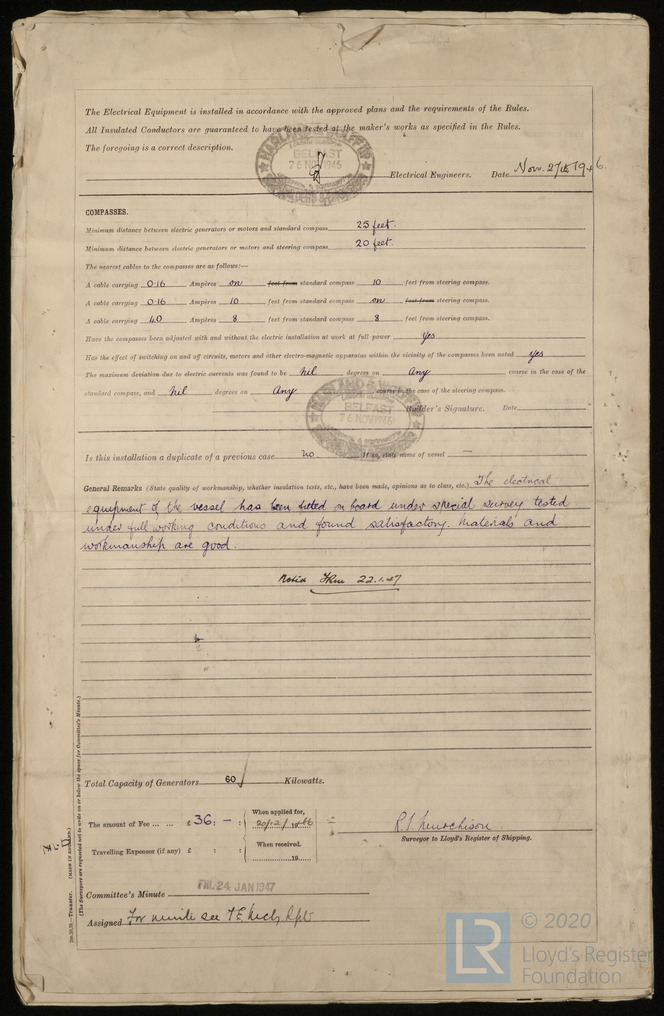 The Electrical Equipment is installed in accordance with the approved plans and the requirements of the Rules.
All Insulated Conductors are guaranteed to have been tested at the maker's works as specified in the Rules.
The foregoing is a correct description.
HARLAND & WOLFF
BELFAST
26 NOV 1946
Electrical Engineers. Date Nov. 27th 1946.
COMPASSES.
Minimum distance between electric generators or motors and standard compass 25 feet.
Minimum distance between electric generators or motors and steering compass 20 feet.
The nearest cables to the compasses are as follows:—
A cable carrying 0.16 Ampères on feet from standard compass 10 feet from steering compass.
A cable carrying 0.16 Ampères 10 feet from standard compass on feet from steering compass.
A cable carrying 40 Ampères 8 feet from standard compass 8 feet from steering compass.
Have the compasses been adjusted with and without the electric installation at work at full power yes
Has the effect of switching on and off circuits, motors and other electro-magnetic apparatus within the vicinity of the compasses been noted yes
The maximum deviation due to electric currents was found to be nil degrees on any course in the case of the
standard compass, and nil degrees on any course in the case of the steering compass.
HARLAND & WOLFF
BELFAST
26 NOV 1946
Builder's Signature. Date
Is this installation a duplicate of a previous case no If so, state name of vessel —
General Remarks (State quality of workmanship, whether insulation tests, etc., have been made, opinions as to class, etc.) The electrical
equipment of the vessel has been fitted on board under special survey, tested
under full working conditions and found satisfactory. Materials and
workmanship are good.
22.1.47
Total Capacity of Generators 60 Kilowatts.
The amount of Fee ... ... £ 36 : — :
When applied for,
20/12/1946
Travelling Expenses (if any) £ : :
When received.
19
Surveyor to Lloyd's Register of Shipping.
Committee's Minute FRI. 24 JAN 1947
Assigned For minute see
(The Surveyors are requested not to write on or below the space for Committee's Minute.)
Transfer.
© 2020
LR
Lloyd's Register
Foundation